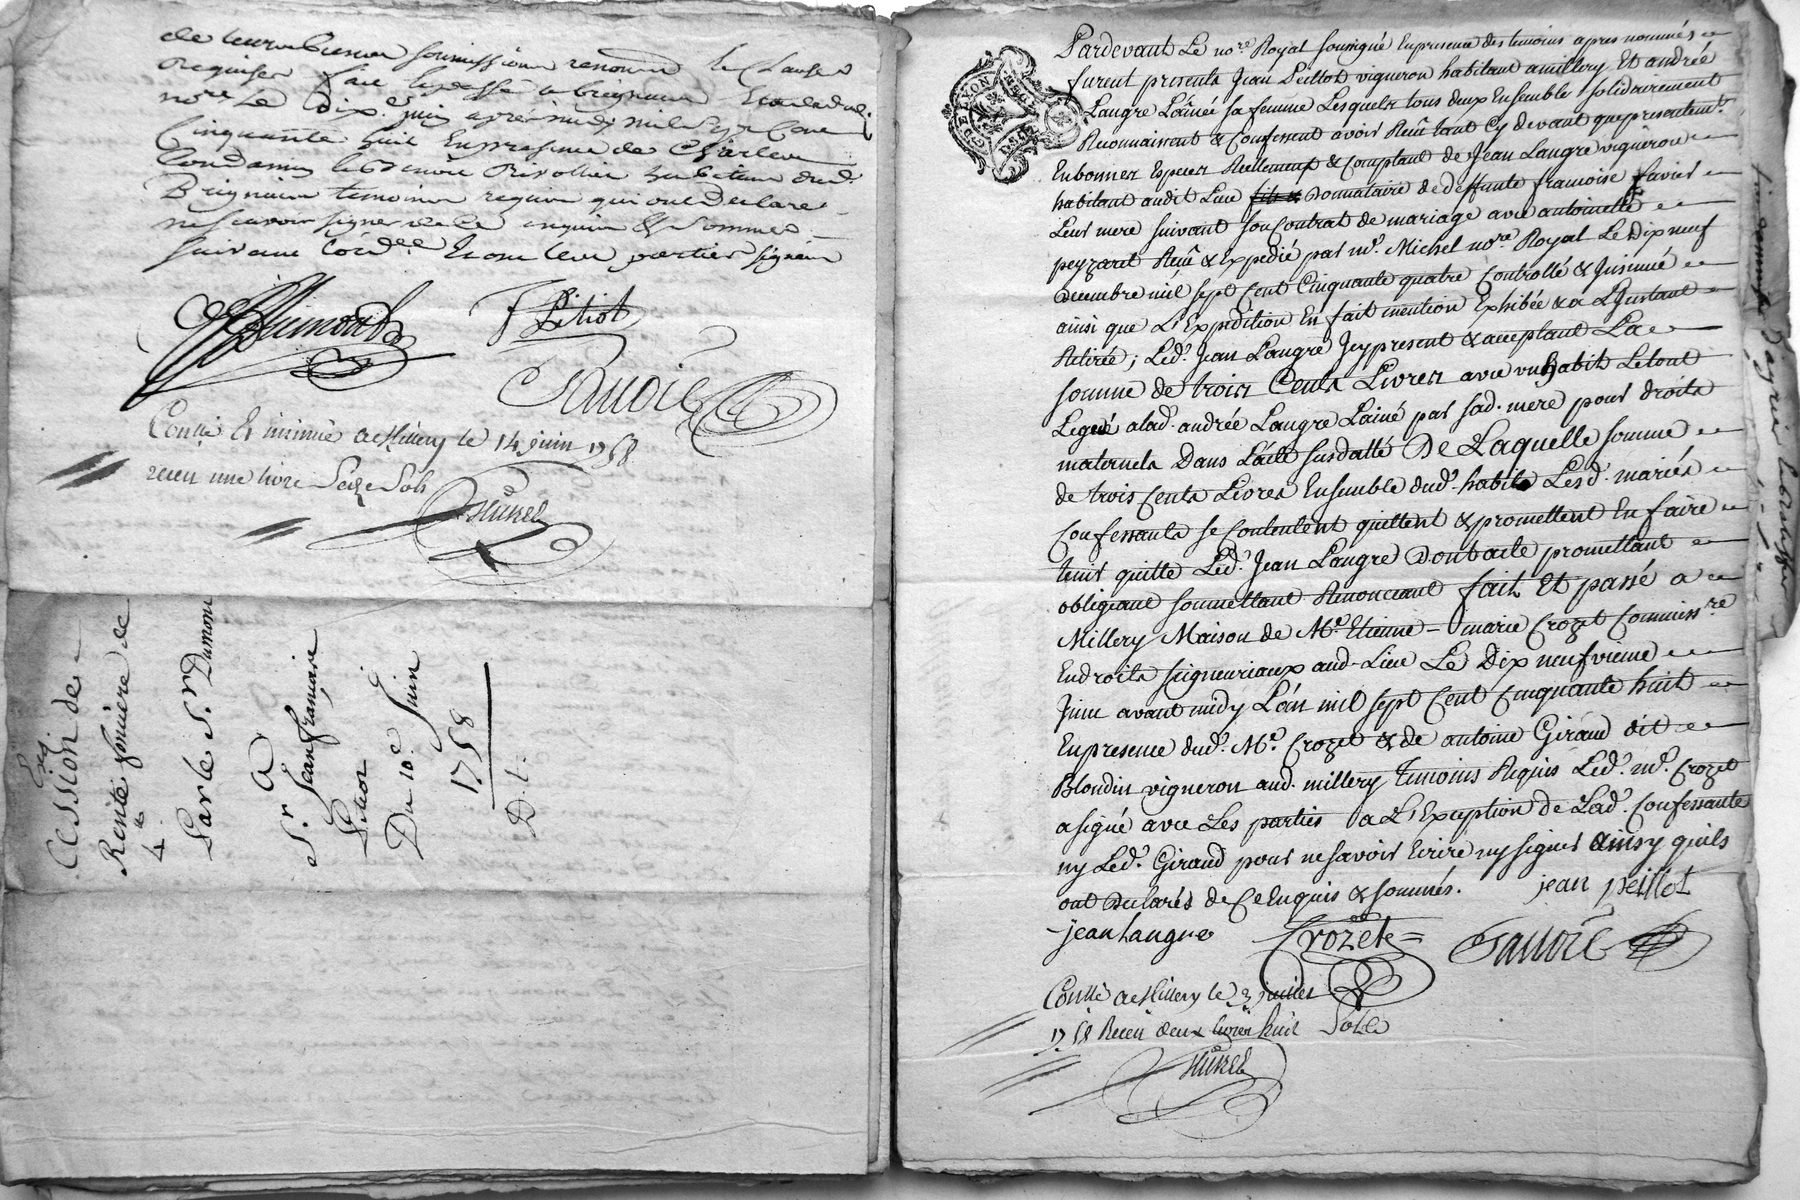 de leurs biens soumissions renon. & clauses
requises fait & passé a Brignais
no.re le dix.e juin après midy mil sept cent
Cinquante huit En presence de Charles
Rivollier habitans dud.
Brignais temoins requis qui ont declaré
ne scavoir signer de ce enquis & sommés
suivant l'ord.ce Et ont les parties signées
Dumond F Pitiot
Sauoie
Conllé Et insinué a Millery le 14 juin 1758
receu une livre Seize Sols
Hurel
Cession de
Rente fonciere de
4 "
Par le S.r Dumond
A
S.r Jean françoise
Pitiot
Du 10.e Juin
1758
D. t.
GDE LYON
Pardevant Le no.re Royal sousigné En presence des temoins apres nommés
furent presents Jean Peillot vigneron habitant a millery Et andrée
Langre L'ainée sa femme Lesquels tous deux Ensemble & solidairement
Reconnaissent & Confessent avoir Reçû tant Cy devant que presentem.t
En bonnes Especes Reellement & Comptant de Jean Langre vigneron
habitant audit Lieu donnataire de deffunte francoise favier
Leur mere suivant son Contrat de mariage avec antoinette
peyzaret Reçû & Expedié par m.e Michel no.re Royal Le Dix neuf
Decembre mil sept Cent Cinquante quatre Controllé & Insinué
ainsi que L'Expedition En fait mention Exhibée & a L'Instant
Retirée; Led. Jean Langre Icy present & acceptant La
somme de trois Cents Livres avec un habit Le tout
Legué a lad. andrée Langre L'ainé par sad. mere pour droits
maternels Dans L'acte susdatté De Laquelle somme
de trois Cents Livres Ensemble dud. habit Lesd. mariés
Confessants se Contentent quittent & promettent En faire
tenir quitte Led. Jean Langre Dont acte promettant
obligeant soumettant Renonceant fait Et passé a
Millery Maison de M.e Etienne - marie Crozet Commiss.re
En droits seigneuriaux aud. Lieu Le Dix neufvieme
Juin avant midy L'an mil sept Cent Cinquante huit
En presence dud. M.e Crozet & de antoine Giraud dit
Blondin vigneron aud. millery temoins Requis Led. m.e Crozet
a signé avec Les parties a L'Exception de Lad. Confessante
ny Led. Giraud pour ne savoir Ecrire ny signer ainsy quils
ont declarés de Ce Enquis & sommés. jean peillot
jean Langre Crozet Sauoie
Conllé a Millery le 3 juillet
1758 Receu deux livres huit Sols
Hurel